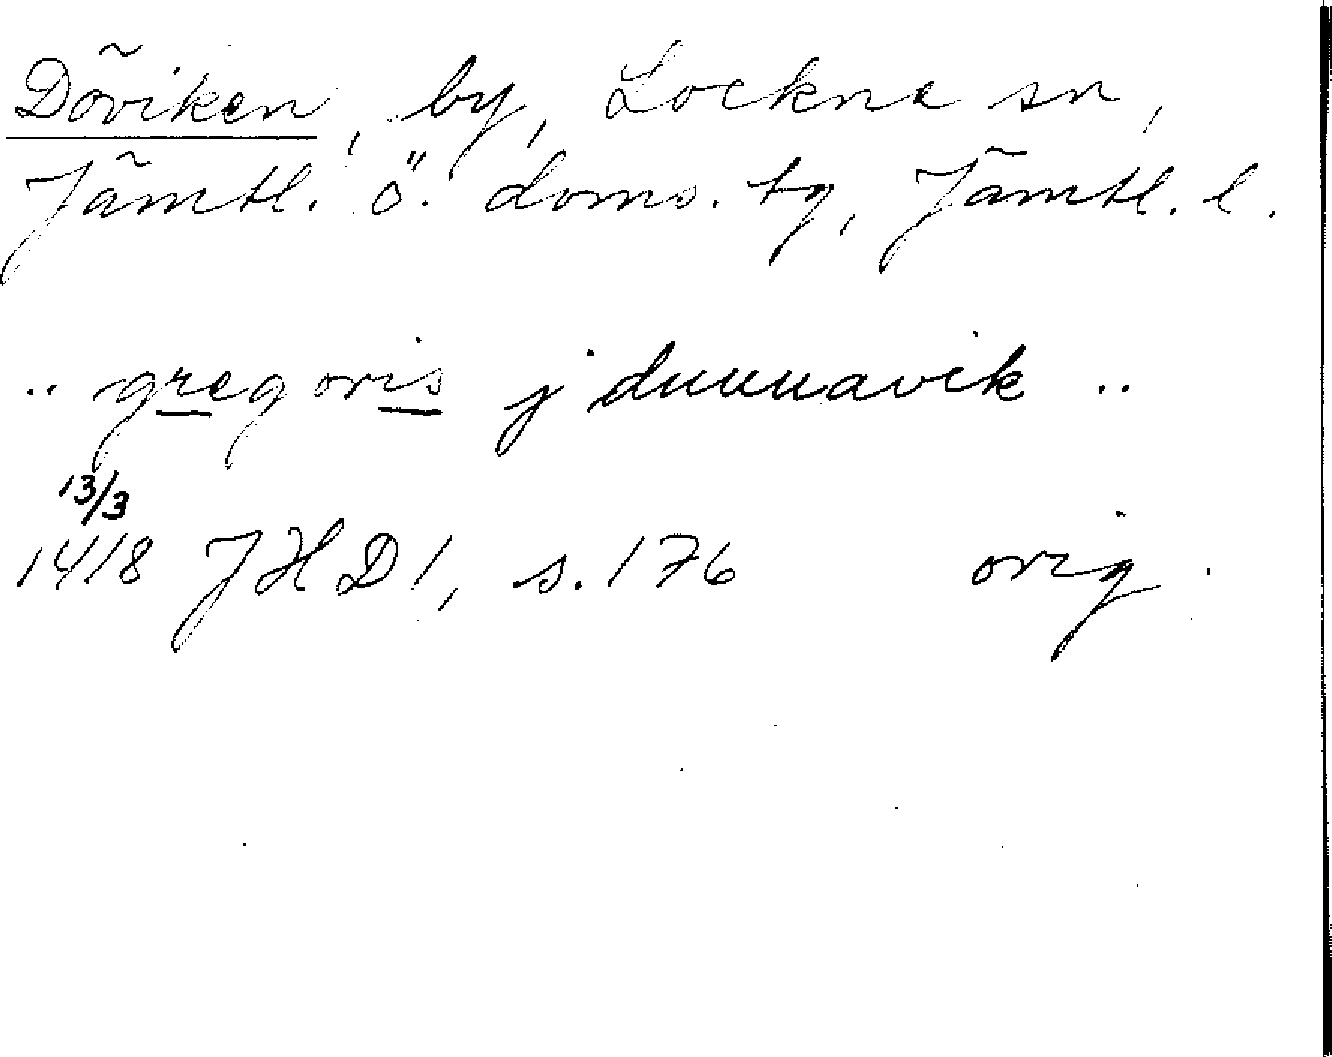 Döviken, by, Lockne sn,
Jämtl. ö. doms. tg, Jämtl. l.
.. gregoris j duuuavik ..
13/3
1418 JHD 1, s. 176 orig.